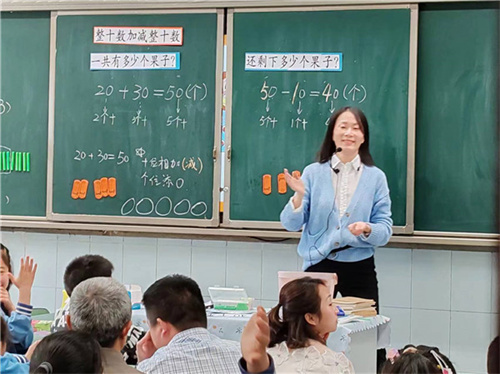 整十数加减整十数
一共有多少个果子?
20+30=50(个)
2个十 3个十 5个十
20+30=50
十位相加(减)
个位添0
还剩下多少个果子?
50-10=40(个)
5个十 1个十